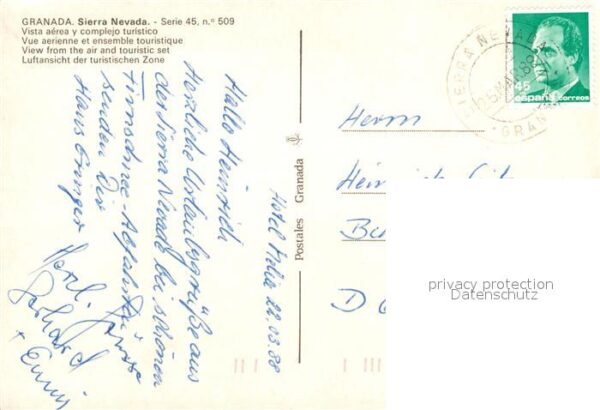 GRANADA. Sierra Nevada. - Serie 45, n.° 509
Vista aérea y complejo turístico
Vue aerienne et ensemble touristique
View from the air and touristic set
Luftansicht der turistischen Zone
Hotel Melia 22.03.88
Hallo Heinrich
Herzliche Urlaubsgrüße aus
der Sierra Nevada bei schönen
Firnschnee Abfahrten
senden Dir
Hans
Gerhard
+ Emmi
Postales Granada
SIERRA NEVADA
GRANADA
45
españa correos
Herrn
D
privacy protection
Datenschutz